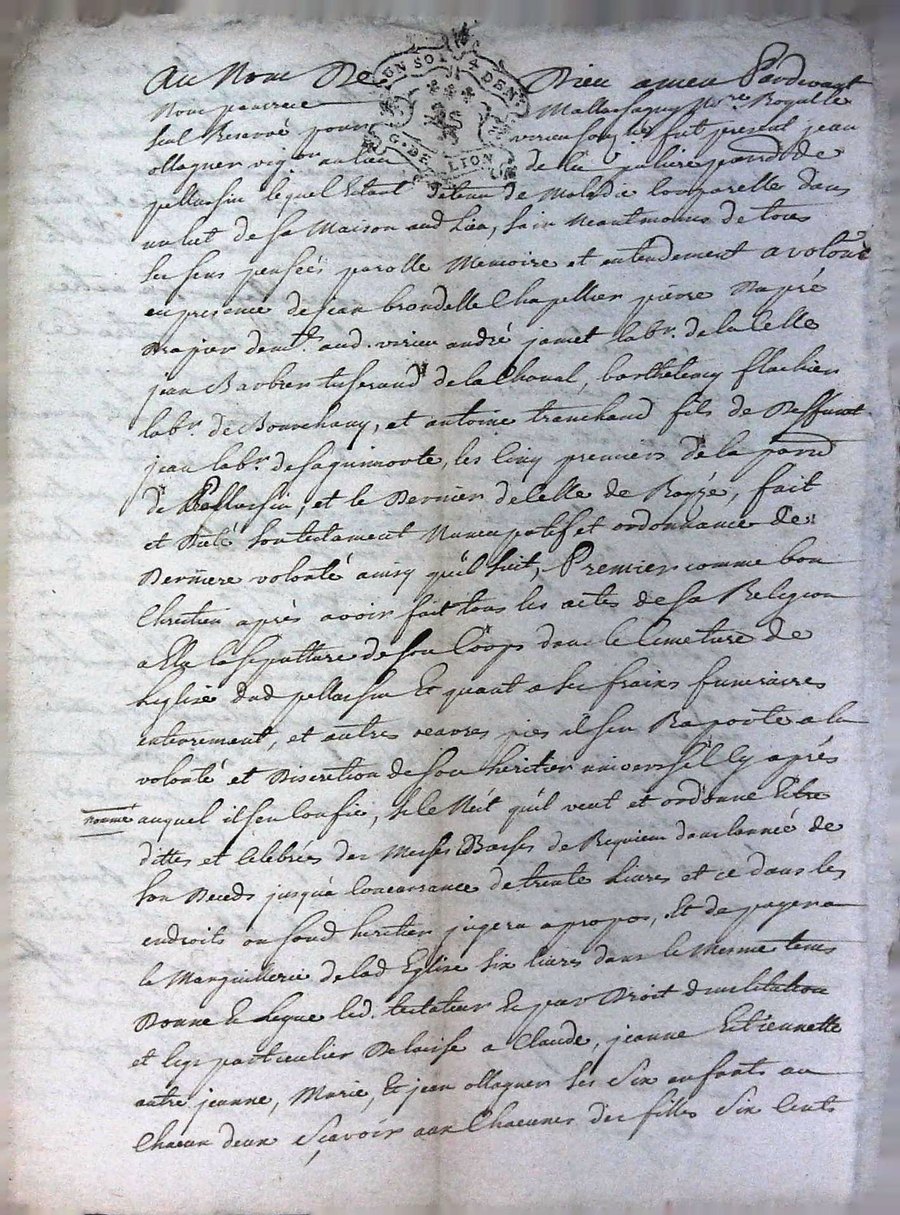 UN SOL 4 DEN.
G. DE LION
Au Nom De Dieu amen Pardevant
Nous Nore Royalle
seul Reservé pour virieu fut present jean
ollagner vigon au lieu de parr. de
pellussin lequel Etant détenu de Maladie Corporelle dans
un lit de sa Maison aud. Lieu, sain Neantmoins de tous
ses sens pensées parolle Memoire et entendement a volonté
en presence de jean brondelle Chapellier pierre
drapier demt. aud. virieu andré jamet labr. de la Celle
jean tisserand de la Chaval, barthelemy flachier
labr. de et antoine tranchand fils de Deffunt
jean labr. de les Cinq premiers de la parr.
de Pellussin, et le Dernier de Celle de fait
et Dicté son testament Nuncupatif et ordonnance de
Derniere volonté ainsy qu'il suit, Premier comme bon
Chretien après avoir fait tous les actes de sa Religion
a Elu la sepulture de son Corps dans le Cimetiere de
Leglise dud. pellussin Et quant a ses fraix funeraires
enterrement, et autres oeuvres pies il s'en Raporte a la
volonté et Discretion de son heritier universel Cy après
nommé
auquel il s'en Confie, si ce N'est qu'il veut et ordonne Estre
dittes et Celebrées des Messes Basses de Requiem dans lannée de
son Deceds jusqua Concurrance de trente Livres et ce dans les
endroits ou sond. heritier jugera apropos, Et de payer a
la Marguillerie de lad. Eglise six livres dans le Mesme tems
Donne & Legue led. testateur & par Droit d'institution
et legs particulier Delaisse a Claude, jeanne Etiennette
autre jeanne, Marie, Et jean ollagner ses Six enfants au
Chacun deux Sçavoir aux Chacunes des filles Six Cents